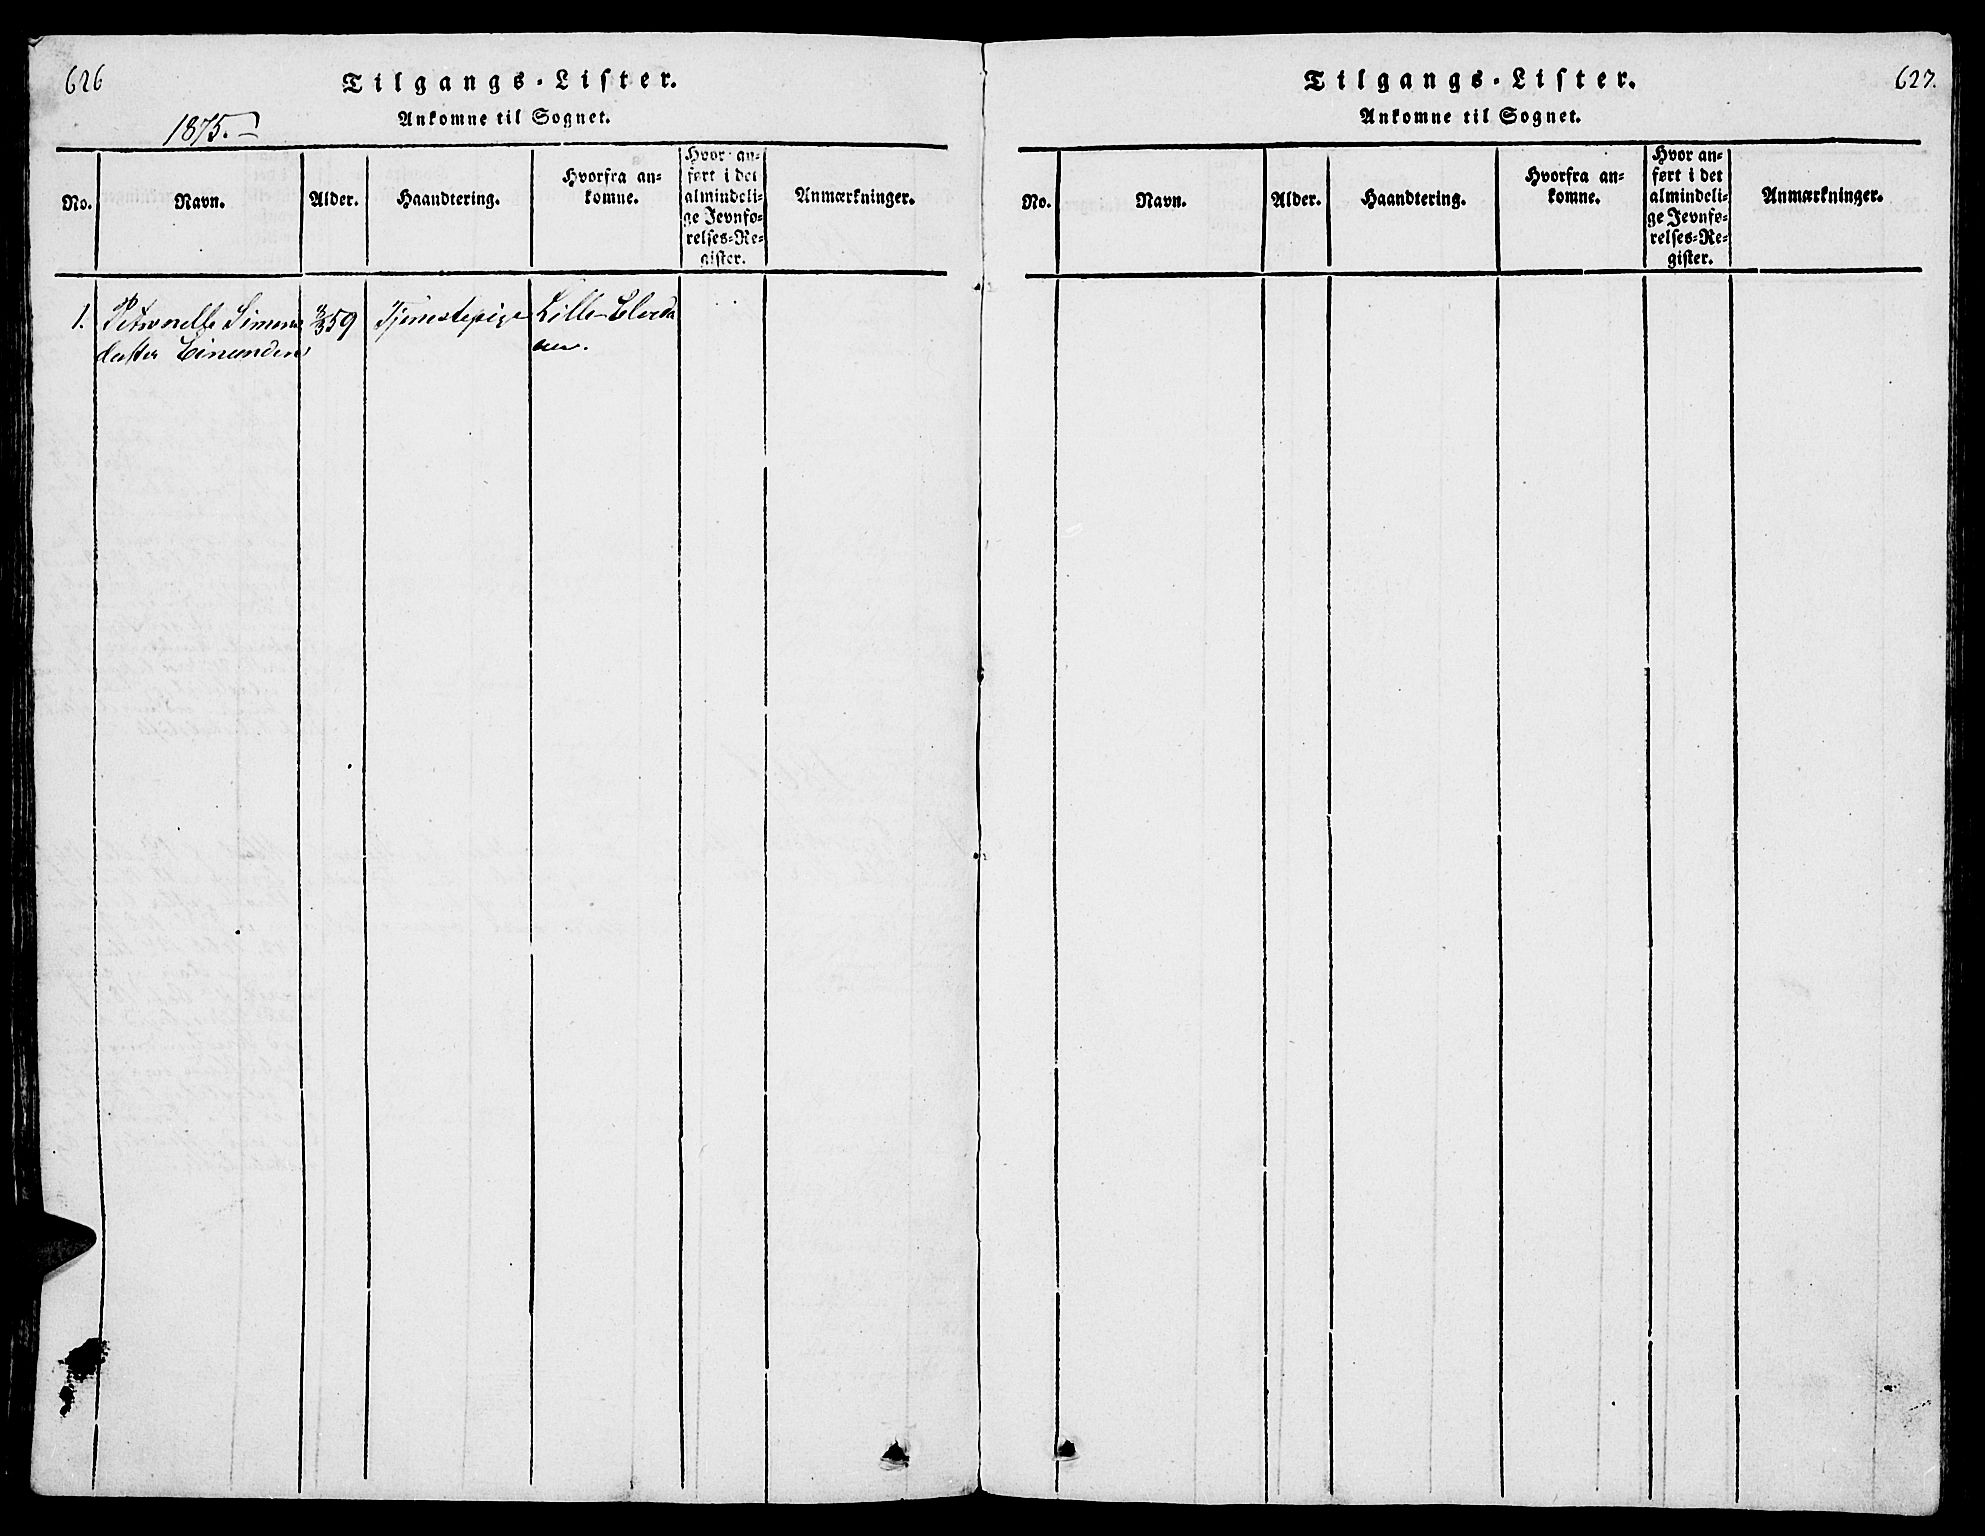 626
Tilgangs-Lister.
Ankomne til Sognet.
1875.
No.
Navn.
Alder.
Haandtering.
Hvorfra an-
komne.
Hvor an-
ført i det
almindeli-
ge Jevnfø-
relses-Re-
gister.
Anmærkninger.
1.
Petronelle Simens
datter Einunden
59
Tjenestepige
Lille-Elveda
len.
Tilgangs-Lister.
627.
Ankomne til Sognet.
No.
Navn.
Alder.
Haandtering.
Hvorfra an-
komne.
Hvor an-
ført i det
almindeli-
ge Jevnfø-
relses-Re-
gister.
Anmærkninger.